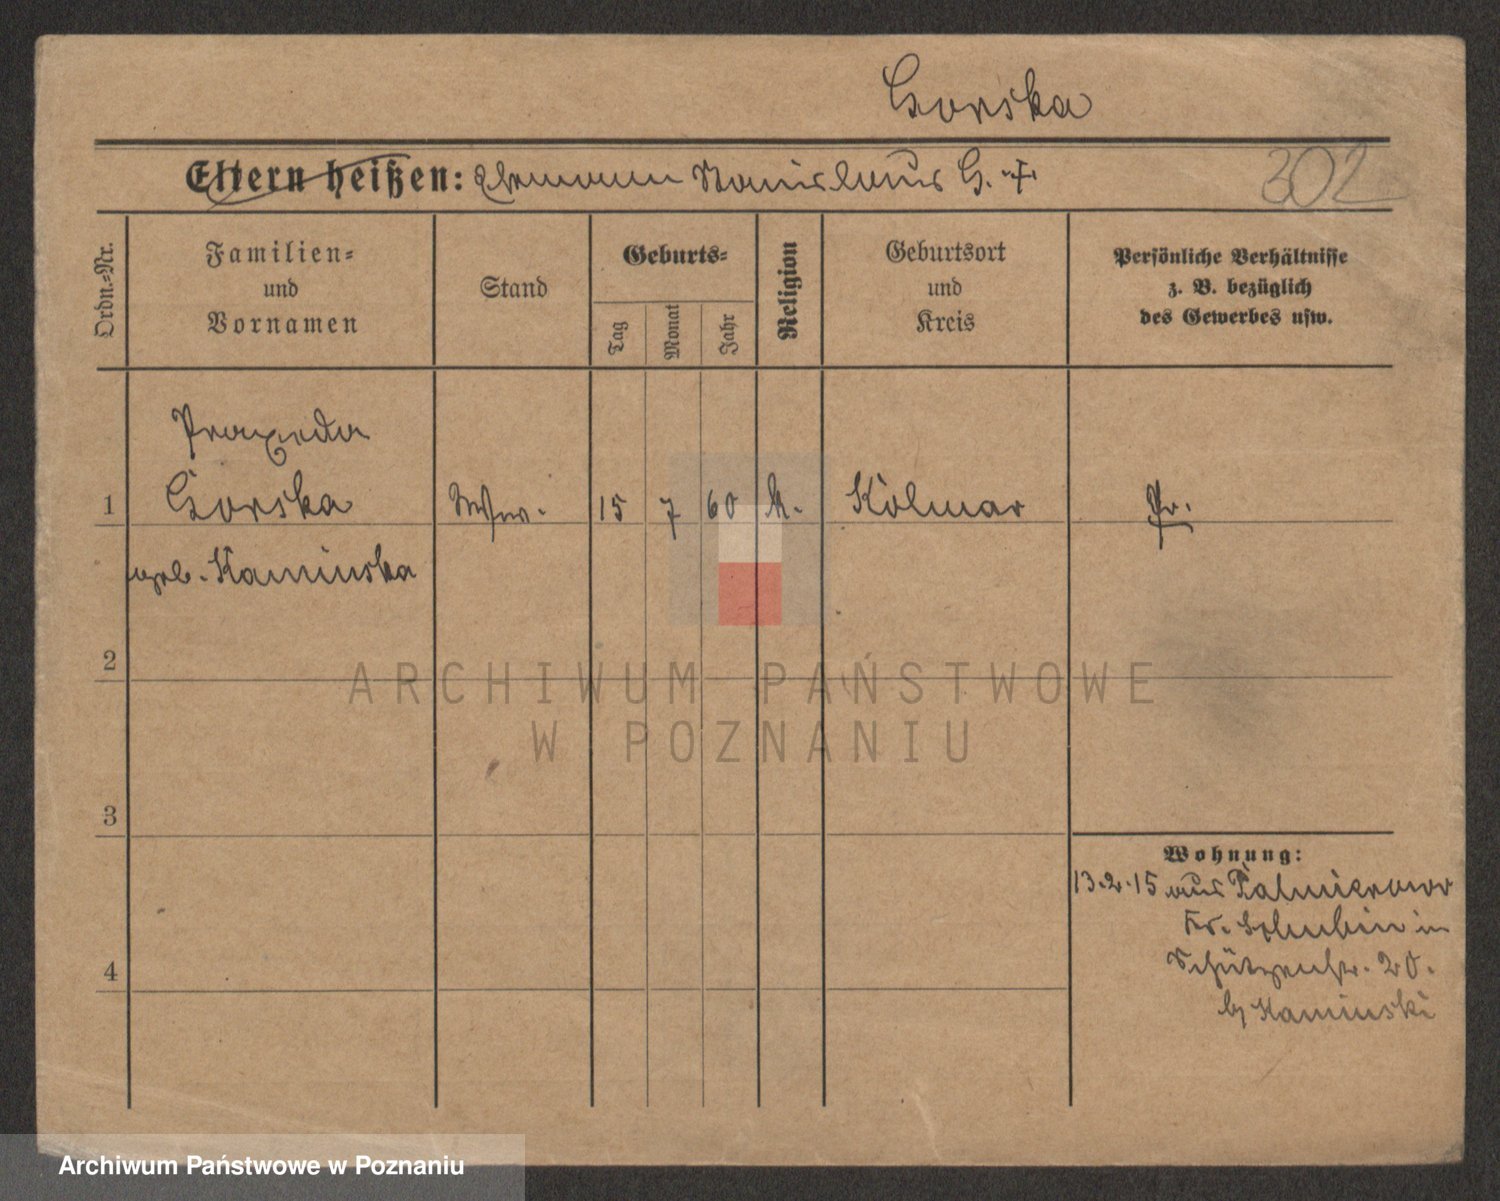 Gorska
Eltern heißen: Ehemann Stanislaus G. †
302
Ordn.-Nr.
Familien-
und
Vornamen
Stand
Geburts-
Tag
Monat
Jahr
Religion
Geburtsort
und
Kreis
Persönliche Verhältnisse
z. B. bezüglich
des Gewerbes usw.
Praxeda
1 Gorska Ww. 15 7 60 k. Kolmar Pr.
geb. Kaminska
2
3
4
Wohnung:
13.2.15 aus Palmierowo
Kr. Schubin in
Schützenstr. 20.
b/ Kaminski
ARCHIWUM PAŃSTWOWE
W POZNANIU
Archiwum Państwowe w Poznaniu